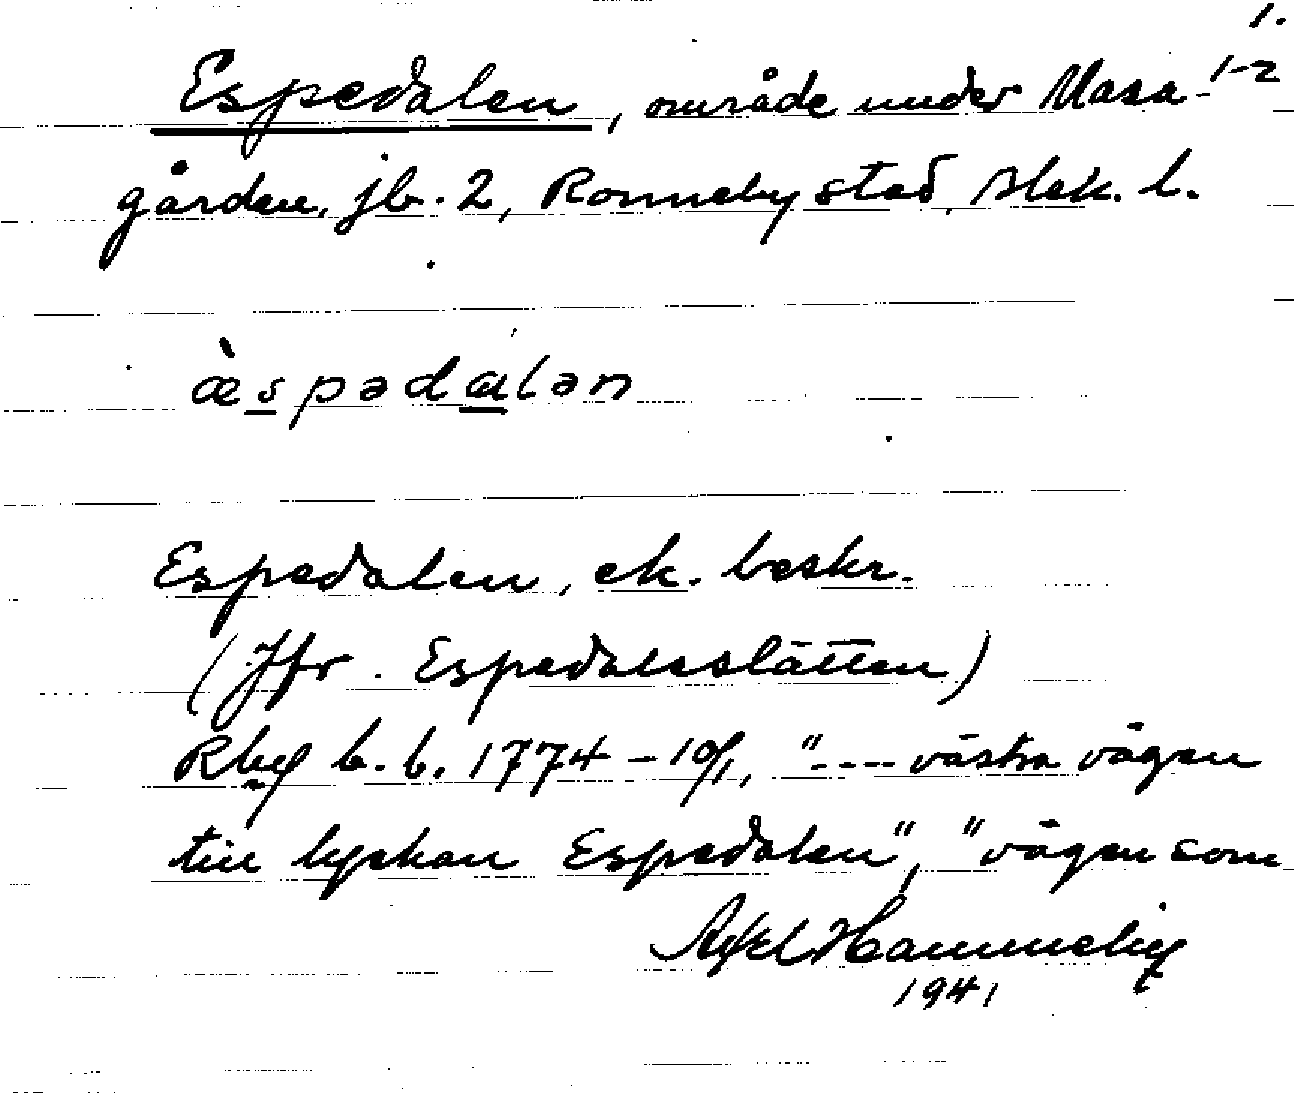 1.
Espedalen, område under Masa- 1-2
gården, jb. 2, Ronneby stad, Blek. l.
æ̀spədalən
Espedalen, ek. beskr.
(Jfr. Espedalsslätten)
Rby b.b. 1774-10/1, "---- västra vägen
till lyckan Espedalen", "vägen som
Axel Hammeby
1941